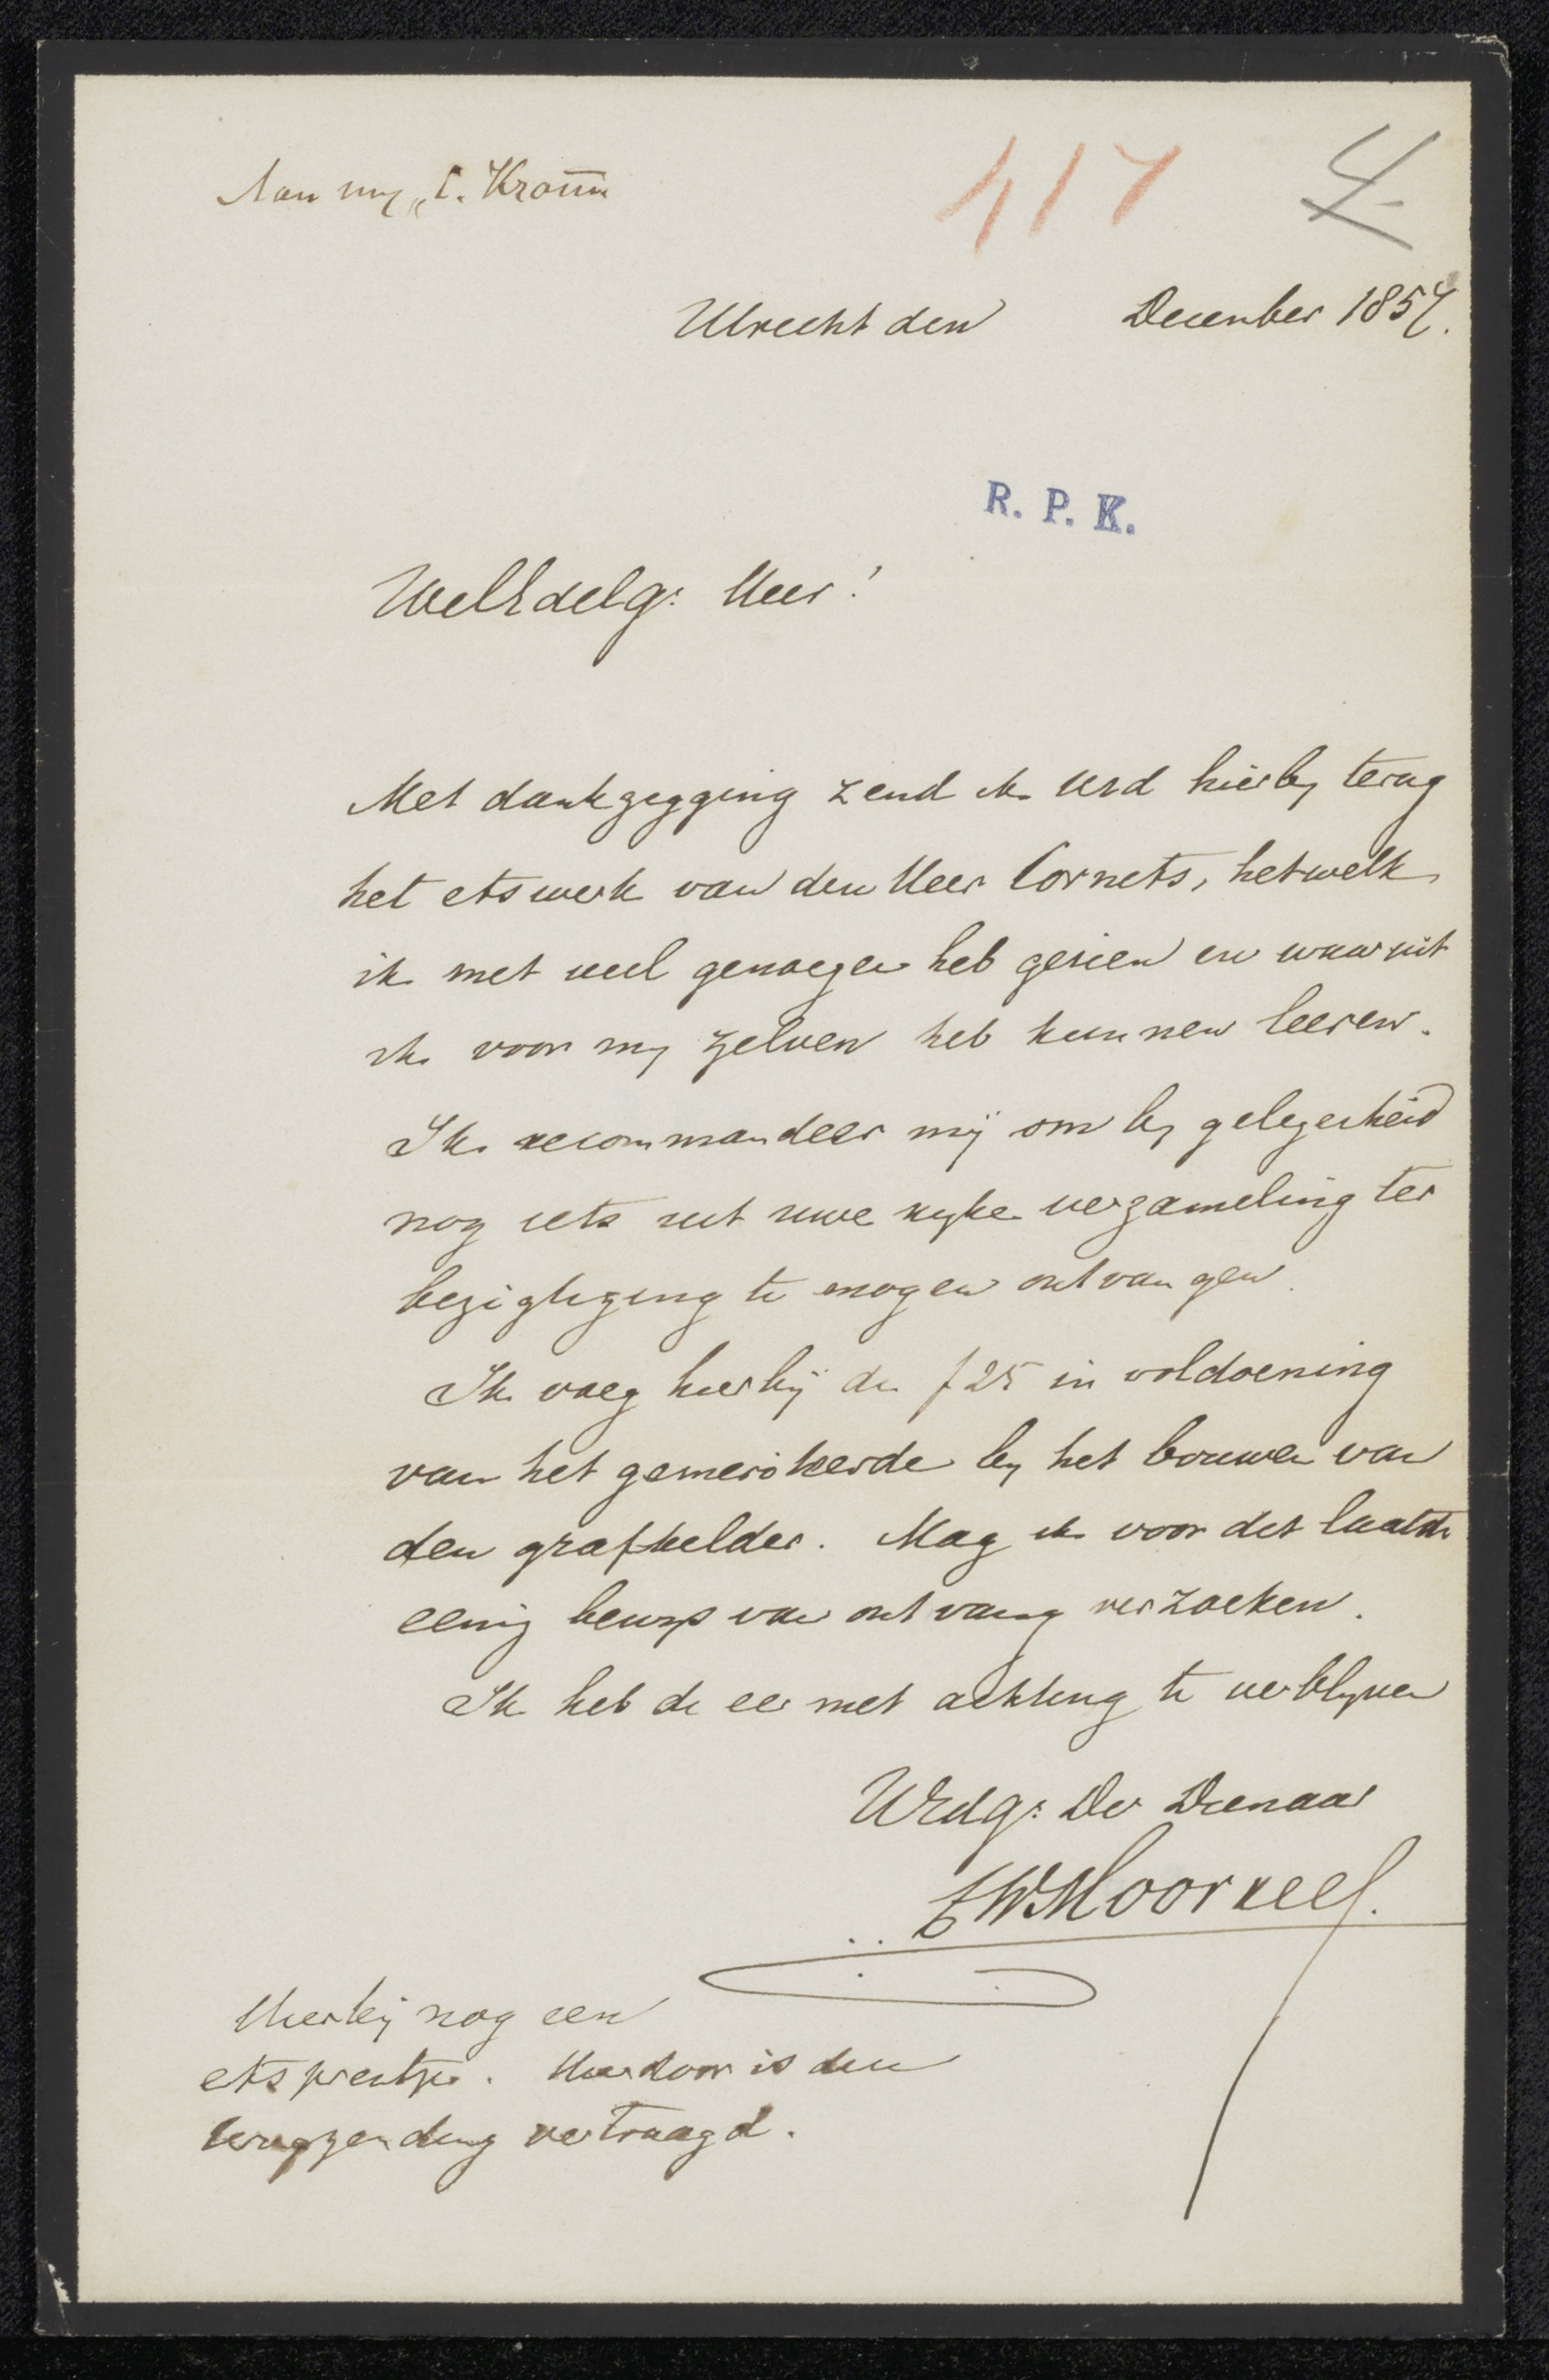 Aan mij, C. Kramm
417
Utrecht den December 1857.
R. P. K.
WelEdelg: Heer!
Met dankzegging zend ik UEd hierby terug
het etswerk van den Heer Cornets, hetwelk
ik met veel genoegen heb gezien en waaruit
ik voor my zelven heb kunnen leeren.
Ik recommandeer mij om by gelegenheid
nog iets uit uwe ryke verzameling ter
bezigtiging te mogen ontvangen.
Ik voeg hierbij de f 25 in voldoening
van het gemerkeerde by het bouwen van
den grafkelder. Mag ik voor dit laatste
eenig bewys van ontvang verzoeken.
Ik heb de eer met achting te verblyven
UEdg: Dv Dienaar
Hierbij nog een
etsprentje. Hierdoor is den
terugzending vertraagd.